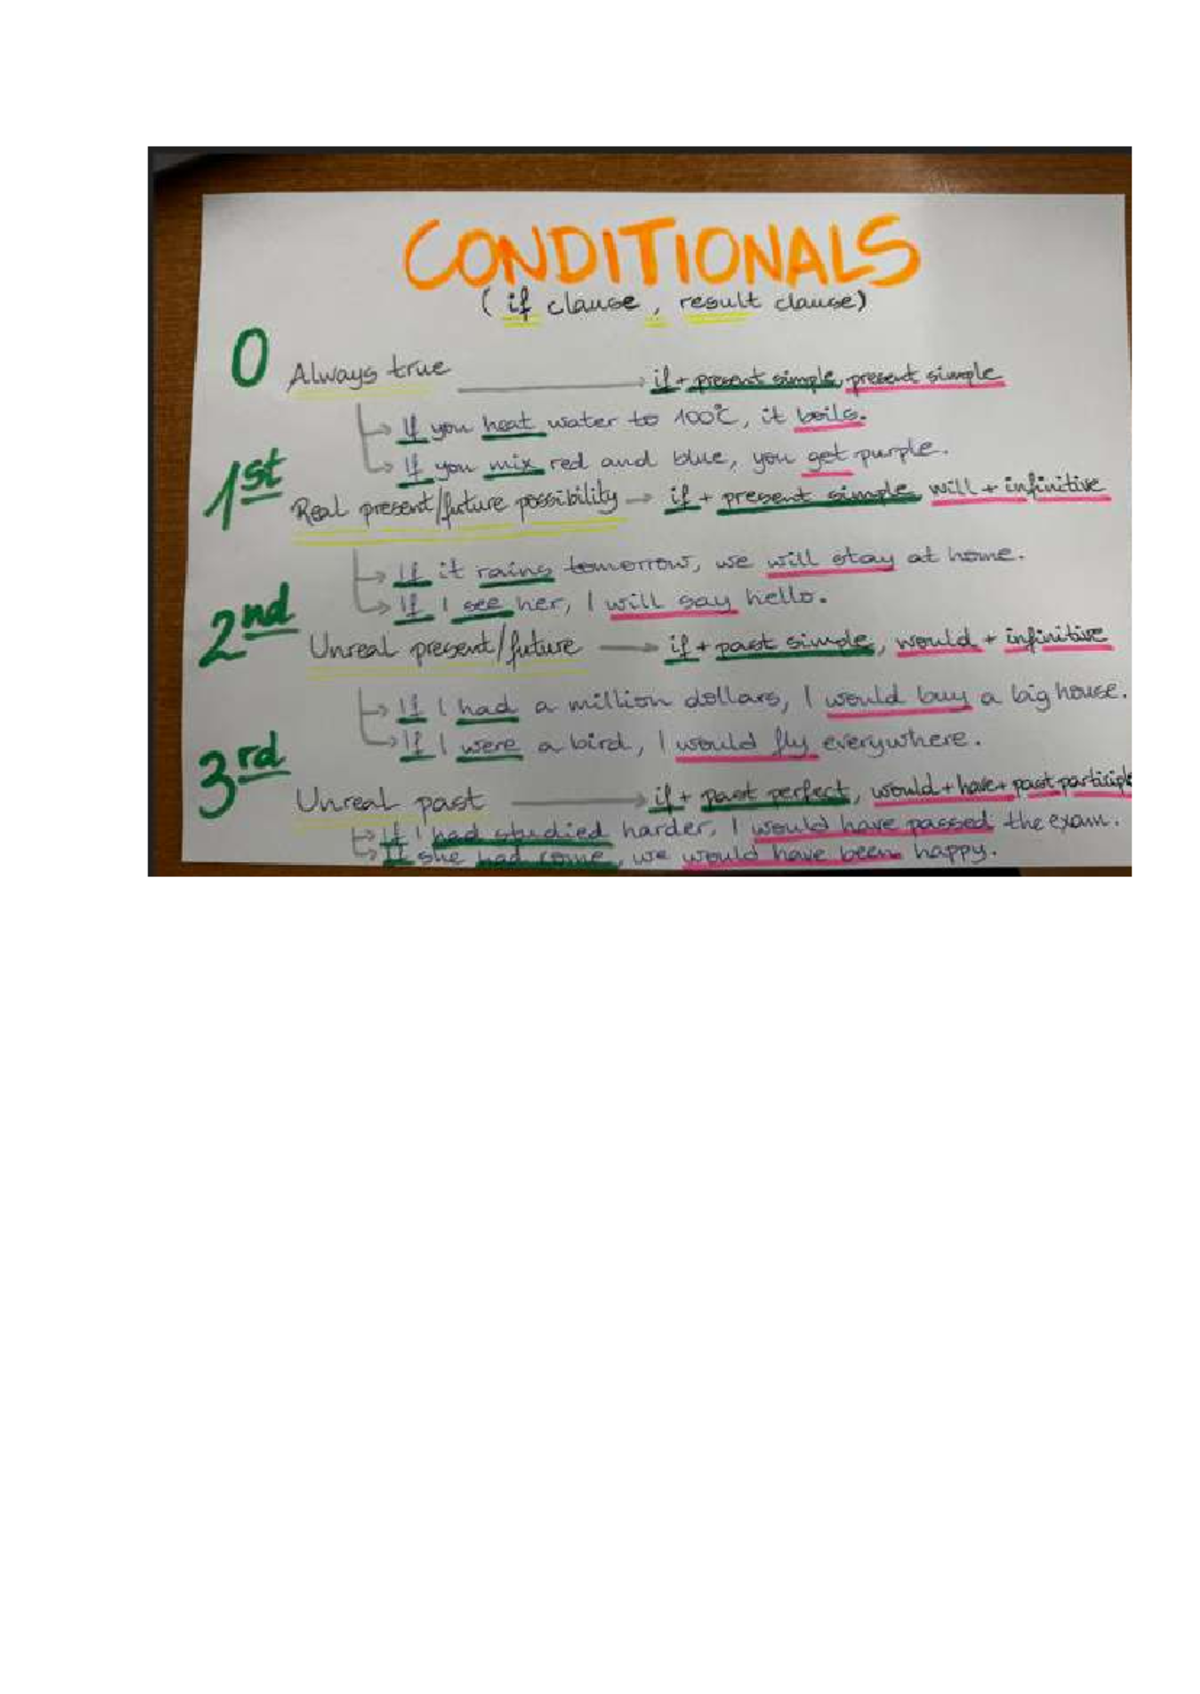 CONDITIONALS
( if clause , result clause)
0 Always true → if + present simple, present simple
If you heat water to 100°C, it boils.
If you mix red and blue, you get purple.
1st Real present/future possibility → if + present simple will + infinitive
If it rains tomorrow, we will stay at home.
If I see her, I will say hello.
2nd Unreal present/future → if + past simple, would + infinitive
If I had a million dollars, I would buy a big house.
If I were a bird, I would fly everywhere.
3rd Unreal past → if + past perfect, would + have + past participl
If I had studied harder, I would have passed the exam.
If she had come, we would have been happy.